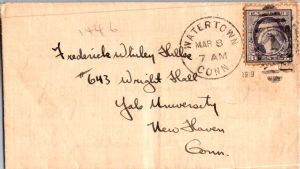 1446
Frederick Whiley Hilles
643 Wright Hall
Yale University
New Haven
Conn.
WATERTOWN
MAR 8
7 AM
CONN